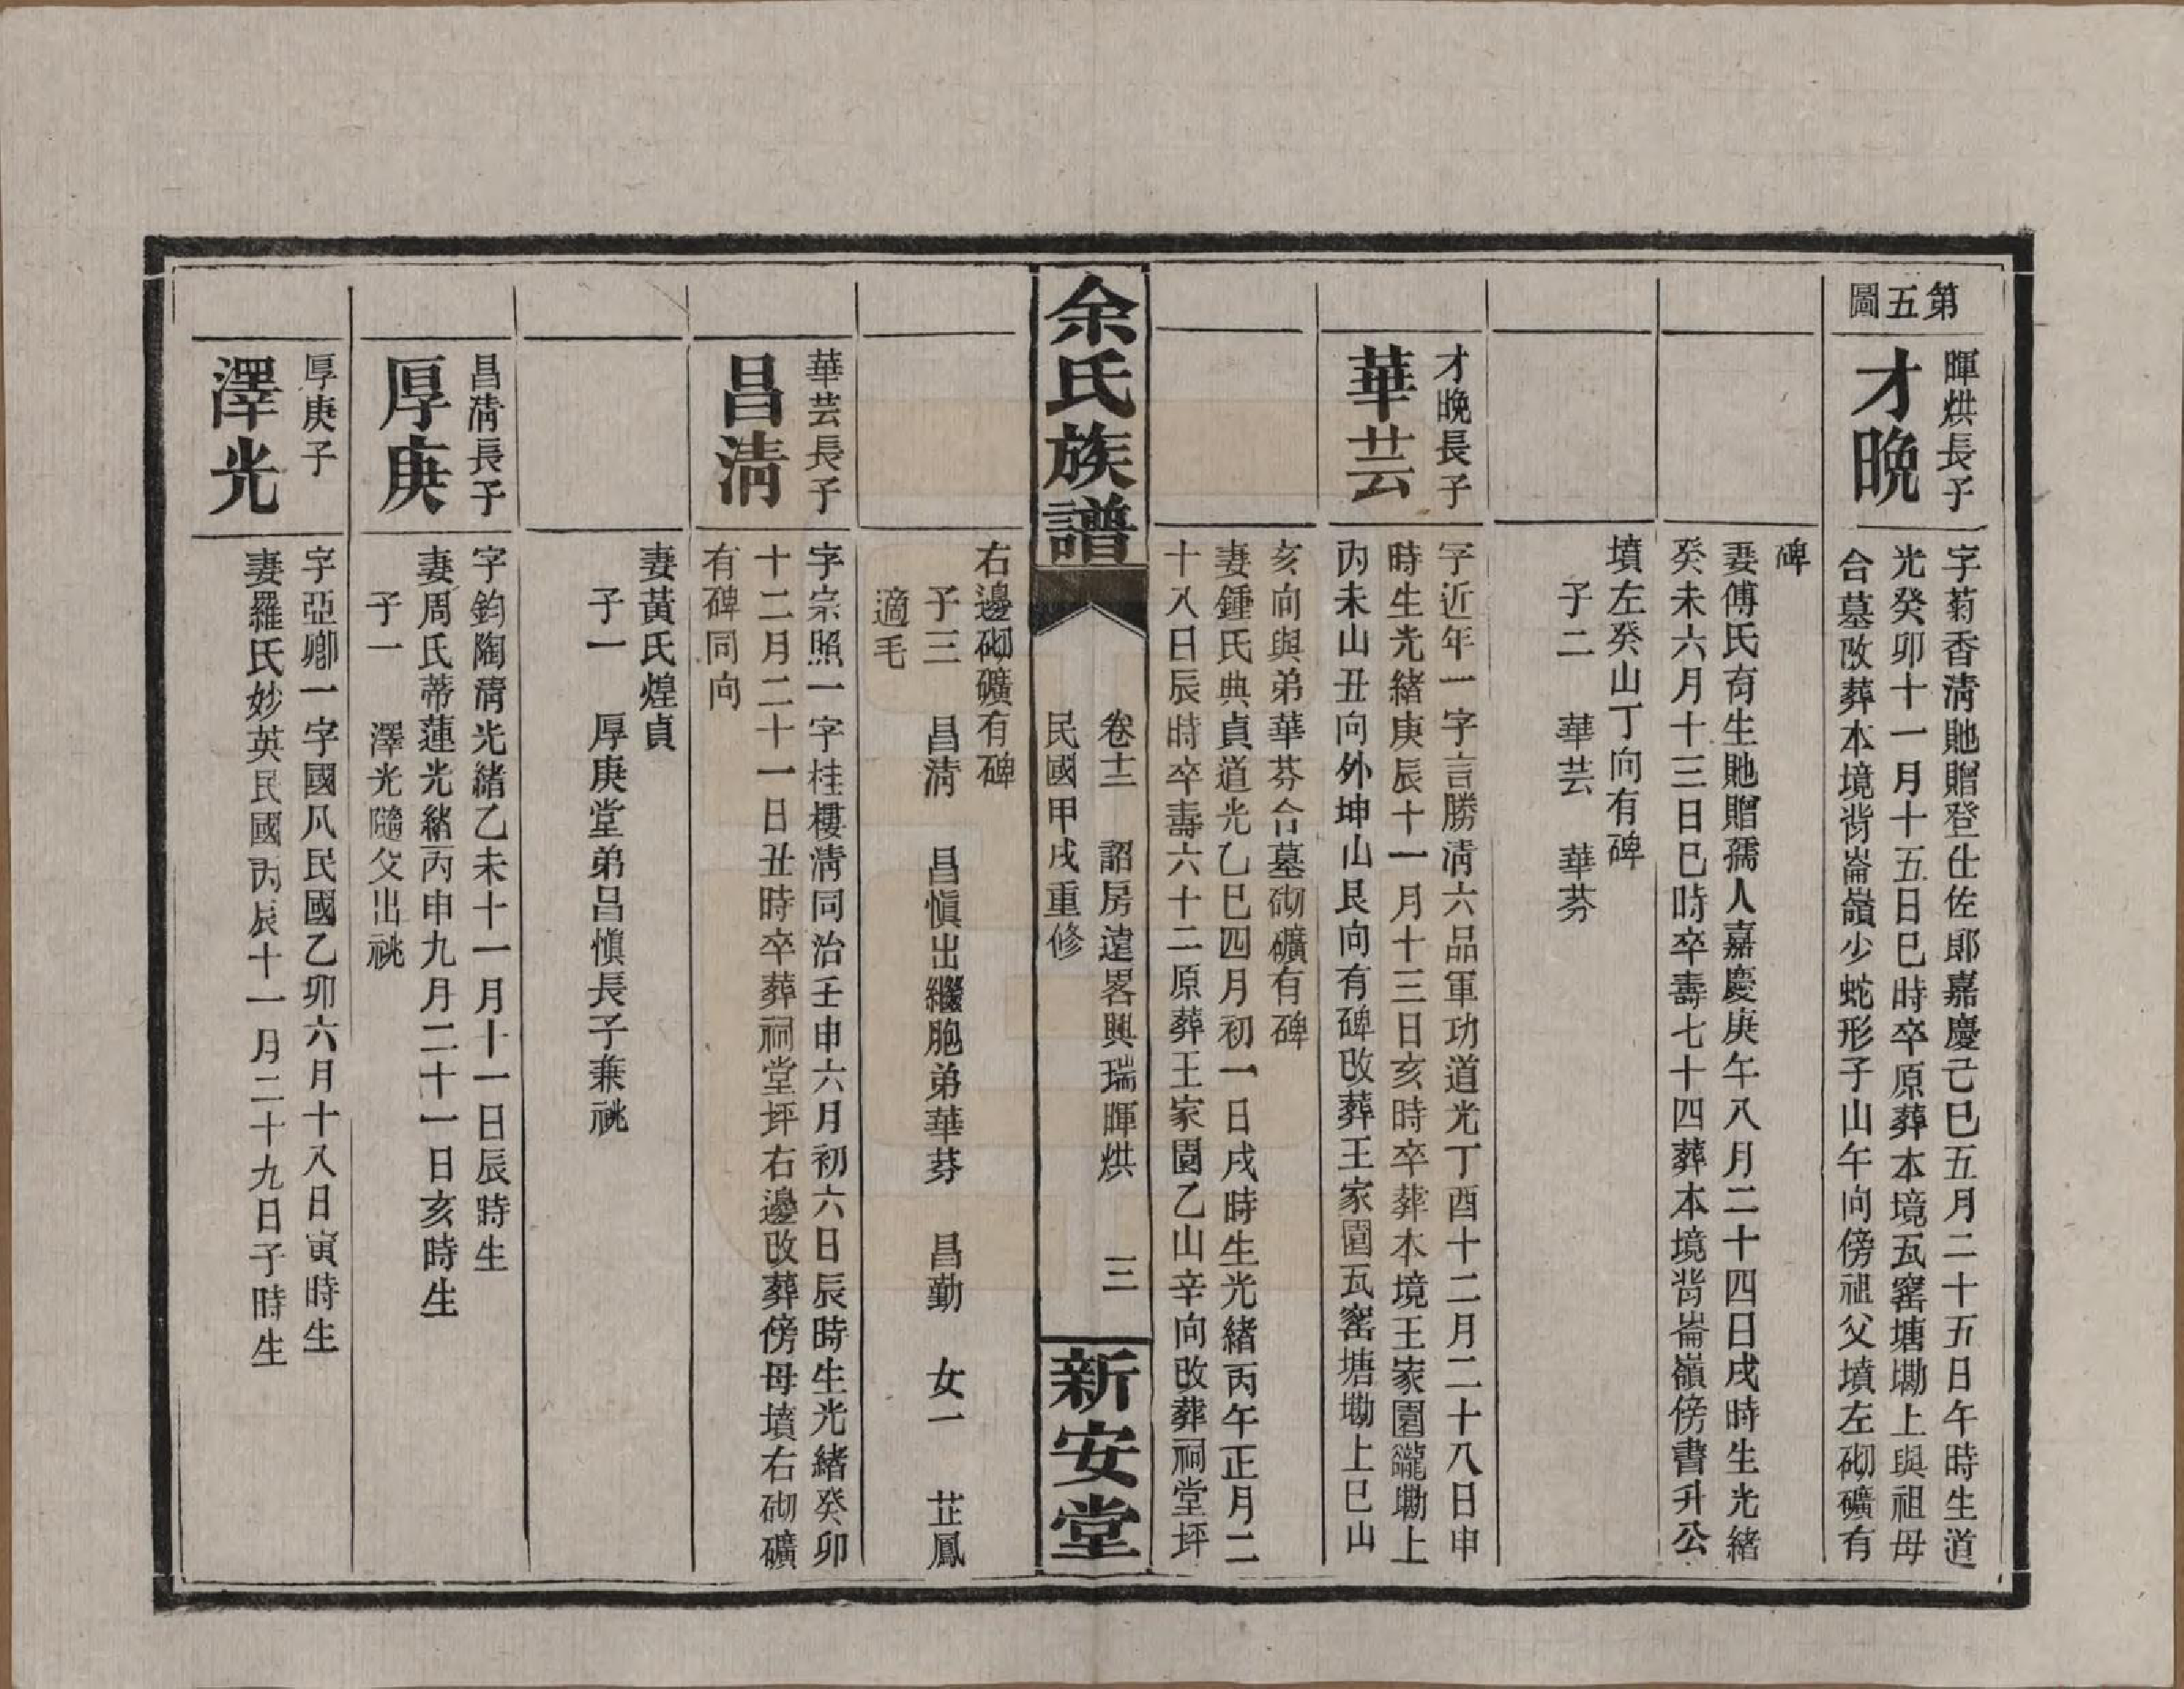 第五圖
暉烘長子
才晩
字菊香清貤贈登仕佐郎嘉慶己巳五月二十五日午時生道
光癸卯十一月十五日巳時卒原葬本境瓦窰塘墈上與祖母
合墓改葬本境背崙嶺少蛇形子山午向傍祖父墳左砌礦有
碑
妻傅氏有生貤贈孺人嘉慶庚午八月二十四日戌時生光緒
癸未六月十三日巳時卒壽七十四葬本境背崙嶺傍書升公
墳左癸山丁向有碑
子二　華芸　華芬
才晩長子
華芸
字近年一字言勝清六品軍功道光丁酉十二月二十八日申
時生光緒庚辰十一月十三日亥時卒葬本境王家園隴墈上
丙未山丑向外坤山艮向有碑改葬王家園瓦窰塘墈上巳山
亥向與弟華芬合墓砌礦有碑
妻鍾氏典貞道光乙巳四月初一日戌時生光緒丙午正月二
十八日辰時卒壽六十二原葬王家園乙山辛向改葬祠堂坪
余氏族譜
卷十二　詔房遠畧興瑞暉烘　三
民國甲戌重修
新安堂
右邊砌礦有碑
子三　昌清　昌愼出繼胞弟華芬　昌勤　女一　芷鳳
適毛
華芸長子
昌清
字宗照一字桂樓清同治壬申六月初六日辰時生光緒癸卯
十二月二十一日丑時卒葬祠堂坪右邊改葬傍母墳右砌礦
有碑同向
妻黃氏煌貞
子一　厚庚堂弟昌愼長子兼祧
昌清長子
厚庚
字鈞陶清光緒乙未十一月十一日辰時生
妻周氏蒂蓮光緒丙申九月二十一日亥時生
子一　澤光隨父出祧
厚庚子
澤光
字亞卿一字國凡民國乙卯六月十八日寅時生
妻羅氏妙英民國丙辰十一月二十九日子時生